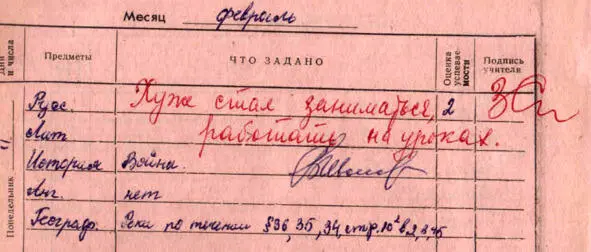 Месяц февраль
Дни и числа
Предметы
ЧТО ЗАДАНО
Оценка успеваемости
Подпись учителя
Понедельник
Русс. Хуже стал заниматься, 2
Лит. работать на уроках.
История Войны.
Анг. нет
Географ. Реки по течении § 36, 35, 34, стр.